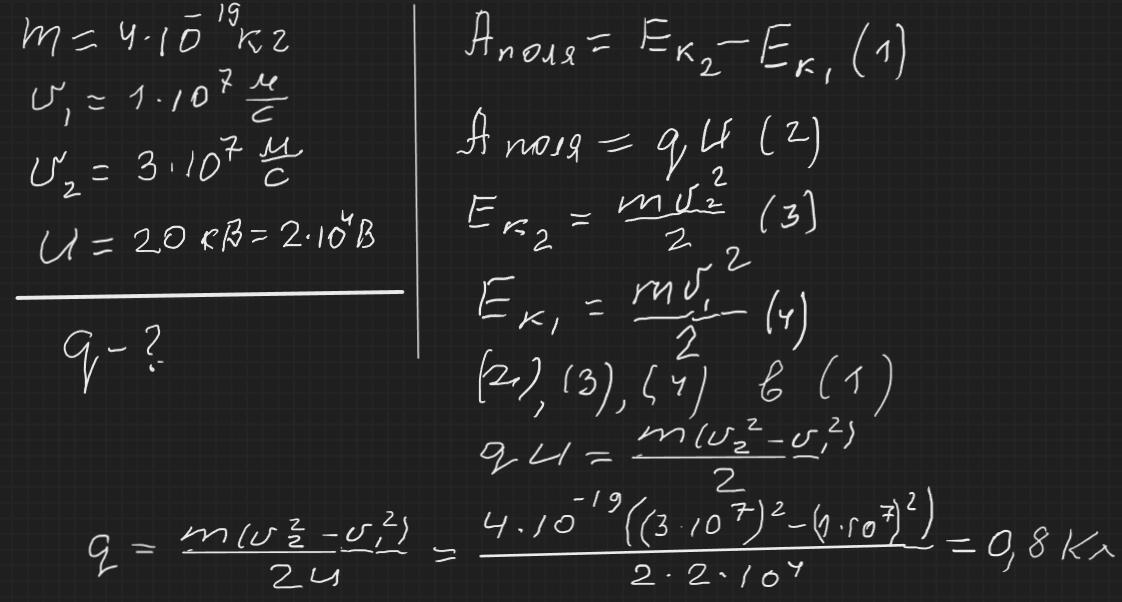 m = 4·10⁻¹⁹ кг
υ₁ = 1·10⁷ м/с
υ₂ = 3·10⁷ м/с
U = 20 кВ = 2·10⁴ В
q - ?
Aполя = Eк₂ - Eк₁ (1)
Aполя = qU (2)
Eк₂ = mυ₂²/2 (3)
Eк₁ = mυ₁²/2 (4)
(2), (3), (4) в (1)
qU = m(υ₂² - υ₁²)/2
q = m(υ₂² - υ₁²)/2U = 4·10⁻¹⁹((3·10⁷)² - (1·10⁷)²)/2·2·10⁴ = 0,8 Кл